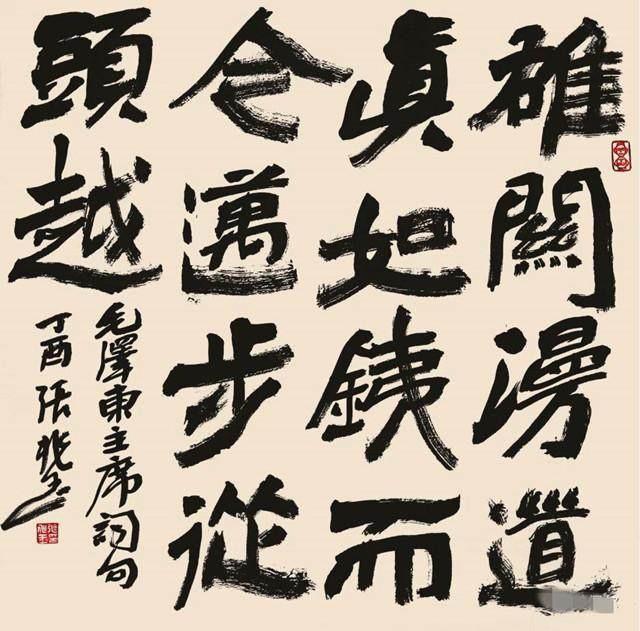 雄關漫道
真如銕而
今邁步從
頭越
毛澤東主席詞句
丁酉張